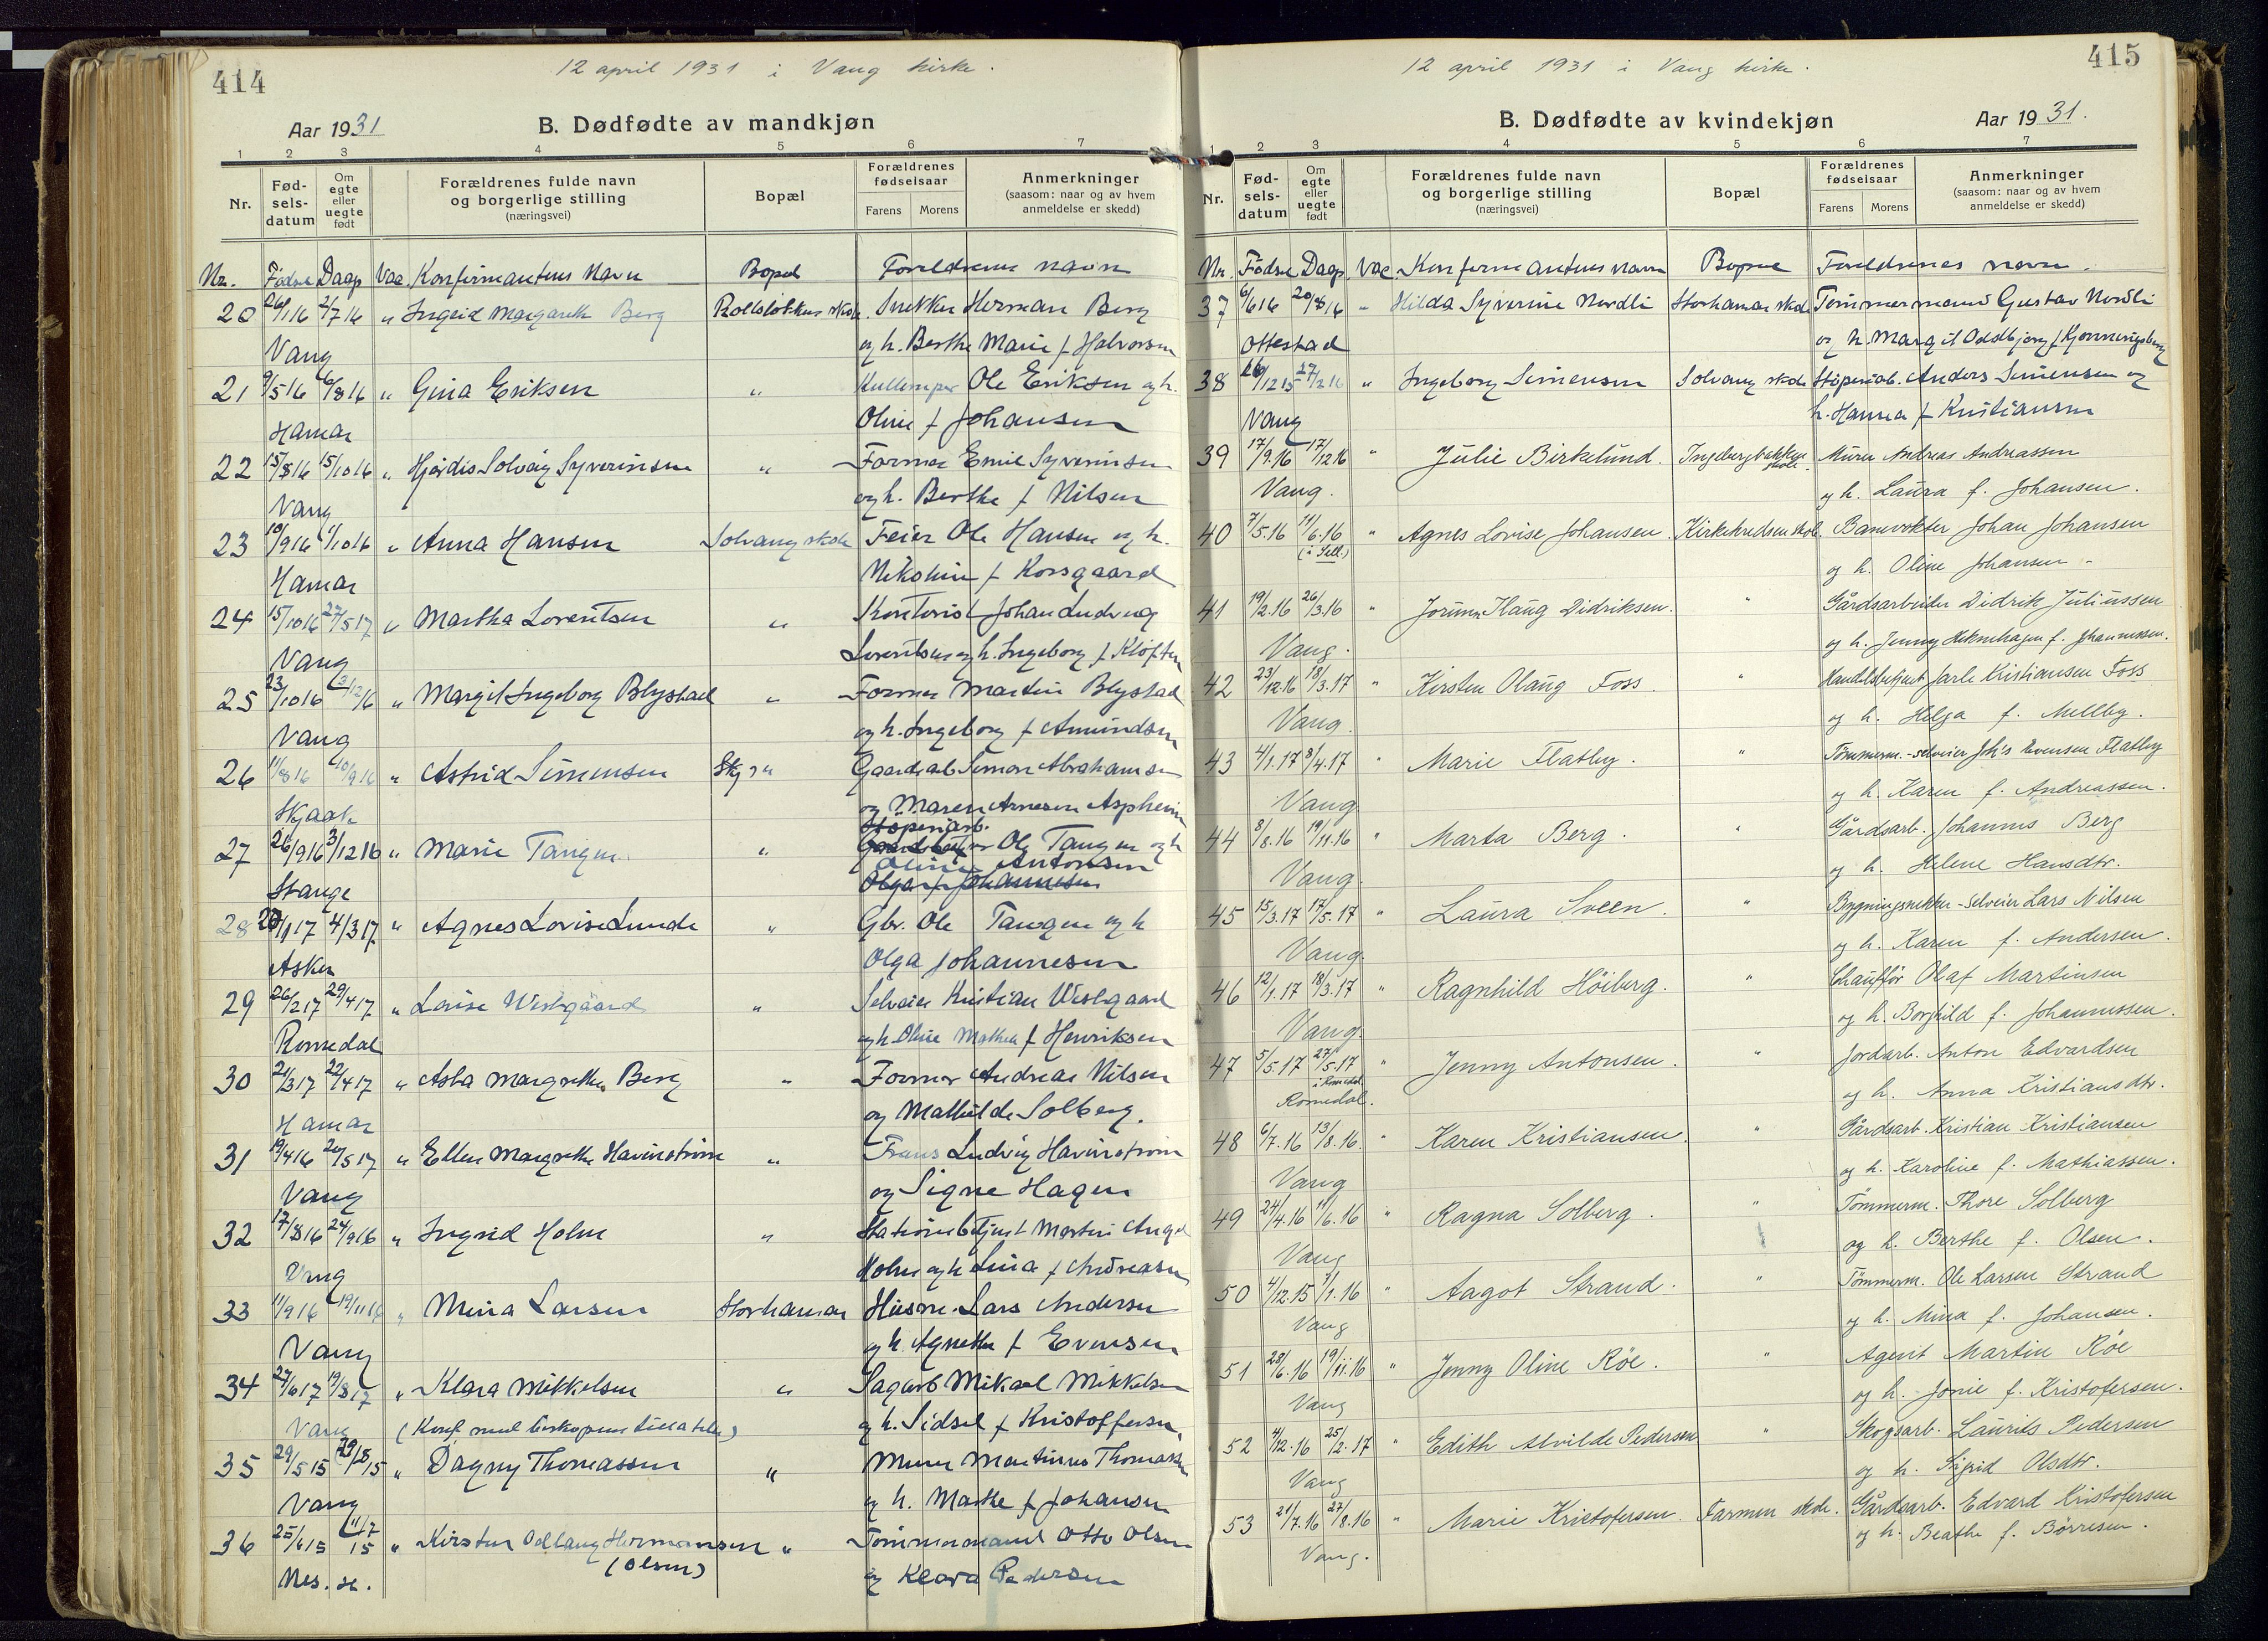 414
12 april 1931 i Vang kirke.
Aar 1931
B. Dødfødte av mandkjøn
1 2 3 4 5 6 7
Nr.
Fød-
sels-
datum
Om
egte
eller
uegte
født
Forældrenes fulde navn
og borgerlige stilling
(næringsvei)
Bopæl
Forældrenes
fødselsaar
Farens Morens
Anmerkninger
(saasom: naar og av hvem
anmeldelse er skedd)
Nr. Fødsel Daap Vac Konfirmantens Navn Bopæl Foreldrenes navn
20 26/1 16 2/7 16 " Ingrid Margareth Berg Rollsløkken skole. Snekker Herman Berg
Vang og h. Berthe Marie f Halvorsen
21 9/5 16 6/8 16 " Gina Eriksen " Kullkjører Ole Eriksen og h.
Hamar Oline f Johansen
22 15/8 16 15/10 16 " Hjørdis Solveig Syverinsen " Former Emil Syverinsen
Vang og h. Berthe f Nilsen
23 10/9 16 1/10 16 " Anna Hansen Solvang skole Feier Ole Hansen og h.
Hamar Nikoline f Korsgaard
24 15/10 16 27/5 17 " Martha Lorentsen " Kontorist Johan Ludvig
Vang Lorentsen og h. Ingeborg f Kløften
25 23/10 16 3/12 16 " Margit Ingeborg Blystad " Former Martin Blystad
Vang og h. Ingeborg f Amundsen
26 11/8 16 10/9 16 " Astrid Simensen " Gaardsarb Simon Abrahamsen
Skjaak og Maren Arnesen Aspheim
Støperiarb.
27 26/9 16 3/12 16 " Marie Tangen " Ole Tangen og h
Oline Antonsen
Stange Olga f Johannesen
28 20/1 17 4/3 17 " Agnes Lovise Lunde " Gbr. Ole Tangen og h
Asker Olga Johannesen
29 26/2 17 29/4 17 " Lovise Westgaard " Selveier Kristian Westgaard
Romedal og h Oline Mathea f Henriksen
30 21/3 17 22/4 17 " Asta Margrethe Berg " Former Andreas Nilsen
Hamar og Mathilde Solberg.
31 19/4 16 20/5 17 " Ellen Margrethe Havinstrøm " Frans Ludvig Havinstrøm
Vang og Signe Hagen
32 17/8 16 24/9 16 " Ingrid Holm " Stationsbetjent Martin August
Vang Holm og h Lina f Andreasen
33 11/9 16 19/11 16 " Mina Larsen Storhamar Husm. Lars Andersen
Vang og h. Agnethe f Evensen
34 27/6 17 19/8 17 " Klara Mikkelsen " Sagarb Mikael Mikkelsen
Vang (Konf. med biskopens tillatelse) og h. Sidsel f Kristoffersen,
35 29/5 15 29/8 15 " Dagny Thomassen " Murer Martinus Thomassen
Vang og h. Marthe f Johansen
36 25/6 15 11/7 15 " Kirsten Odlaug Hermansen " Tømmermand Otto Olsen
Nes. H. (Olsen) og Klara Pedersen
415
12 april 1931 i Vang kirke.
B. Dødfødte av kvindekjøn
Aar 1931.
1 2 3 4 5 6 7
Nr.
Fød-
sels-
datum
Om
egte
eller
uegte
født
Forældrenes fulde navn
og borgerlige stilling
(næringsvei)
Bopæl
Forældrenes
fødselsaar
Farens Morens
Anmerkninger
(saasom: naar og av hvem
anmeldelse er skedd)
Nr. Fødsel Daap Vac Konfirmantens navn Bopæl Foreldrenes navn.
37 6/6 16 20/8 16 " Hilda Syverine Nordli Storhamar skole Tømmermand Gustav Nordli
Ottestad og h. Margit Oddbjørg f Kjoneringsberg
38 26/12 15 27/2 16 " Ingeborg Simensen Solvang skole Støperiarb. Anders Simensen og
Vang h. Hanna f Kristiansen
39 17/9.16 17/12 16 " Julie Birkelund. Ingebergbakken skole. Murer Andreas Andreassen
Vang. og h. Laura f. Johansen.
40 7/5.16 11/6.16 " Agnes Lovise Johansen. Kirkekredsen skole. Banevokter Johan Johansen
(i Sell.) og h. Oline Johansen
41 19/2.16 26/3.16 " Jorunn Haug Didriksen. " Gårdsarbeider Didrik Juliussen
Vang. og h. Jenny Heknehagen f. Johannessen.
42 23/12.16 18/3.17 " Kirsten Olaug Foss. " Handelsbetjent Jarle Kristiansen Foss
Vang. og h. Helga f. Mellby.
43 4/1.17 8/4.17 " Marie Flatby. " Tømmerm.-selveier Joh's Evensen Flatby
Vang og h. Karen f. Andreassen.
44 8/8.16 19/11.16 " Marta Berg. " Gårdsarb. Johannes Berg
Vang og h. Helene Hansdtr.
45 15/3.17 17/5.17 " Laura Sveen. " Bygningssnekker-Selveier Lars Nilsen
Vang. og h. Karen f. Andersen.
46 12/1.17 18/3.17 " Ragnhild Høiberg. " Chauffør Olaf Martinsen
Vang. og h. Borghild f. Johannessen.
47 5/5.17 27/5.17 " Jenny Antonsen. " Jordarb. Anton Edvardsen
i Romedal
Romedal. og h. Anna Kristiansdtr.
48 6/7.16 13/8.16. " Karen Kristiansen. " Gårdsarb. Kristian Kristiansen
Vang og h. Karoline f. Mathiassen.
49 27/4.16 11/6.16 " Ragna Solberg. " Tømmerm. Thore Solberg
Vang og h. Berthe f. Olsen.
50 4/12.15 7/1.16 " Aagot Strand. " Tømmerm. Ole Larsen Strand
Vang og h. Mina f. Johansen.
51 28/6.16 19/11.16 " Jenny Oline Røe. " Agent Martin Røe
Vang og h. Jonie f. Kristofersen.
52 4/12.16 25/2.17 " Edith Alvilde Pedersen " Skogsarb. Laurits Pedersen
Vang og h. Sigrid Olsdtr.
53 21/7.16 27/8.16 " Marie Kristofersen. Farmen skole. Gårdsarb. Edvard Kristofersen
Vang. og h. Beathe f. Børresen.